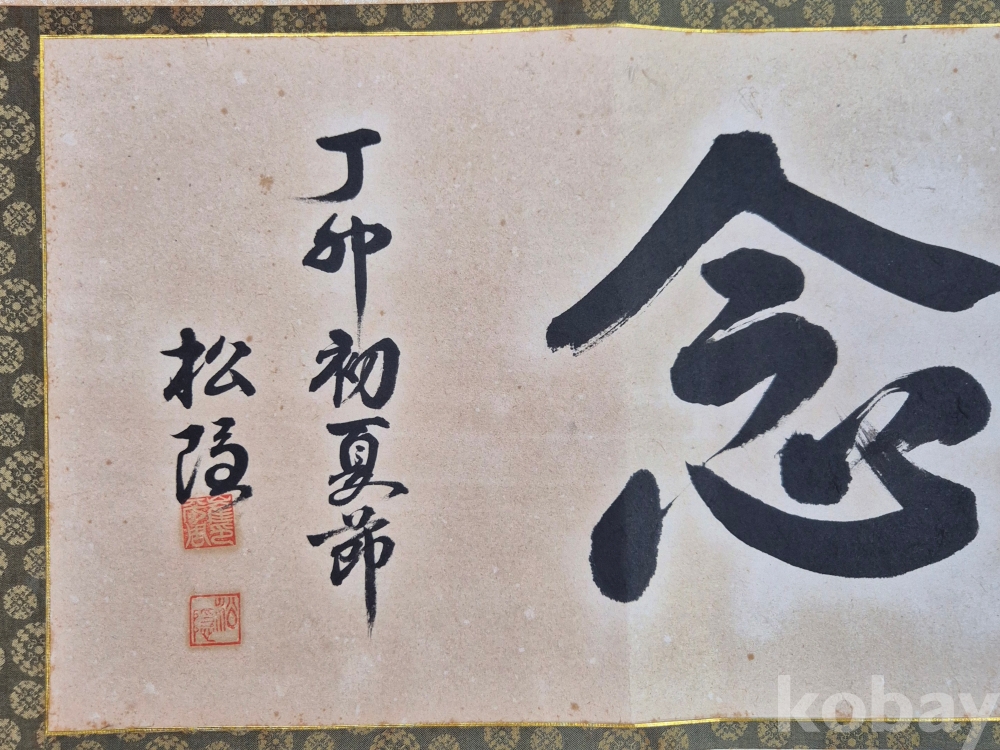 念
丁卯初夏節
松隱
kobay